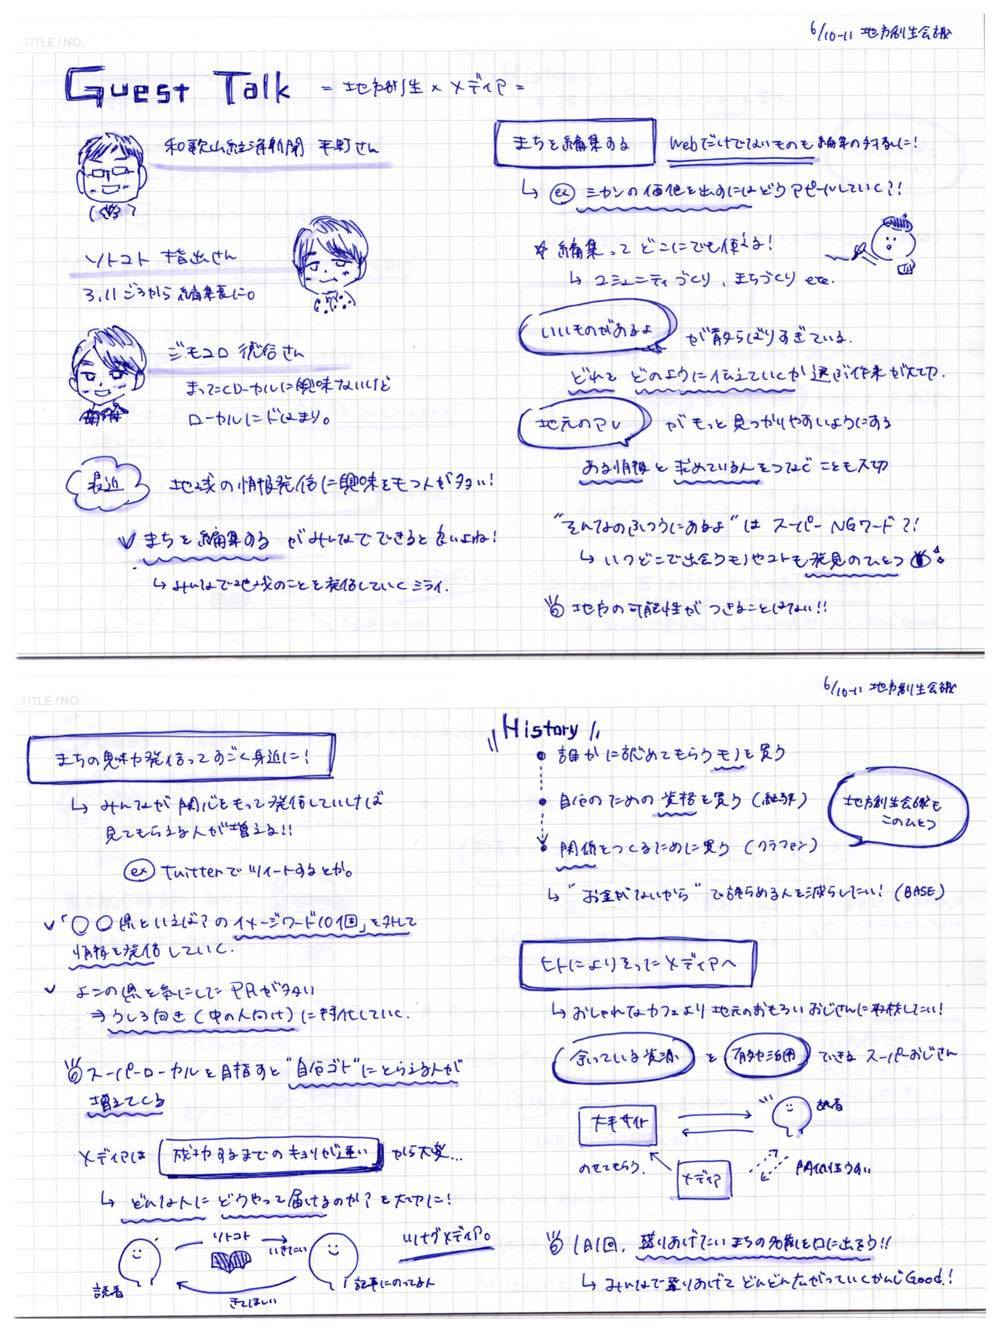 TITLE / NO.
6/10-11 地方創生会議
Guest Talk = 地方創生 × メディア =
和歌山経済新聞 平町さん
ソトコト 指出さん
3.11ごろから編集長に。
ジモコロ 徳谷さん
まったくローカルに興味ないけど
ローカルにドはまり。
最近 地域の情報発信に興味をもつ人が多い!
まちを編集する がみんなでできると良いよね!
↳ みんなで地域のことを発信していくミライ.
まちを編集する Webだけでないものも編集の対象に!
↳ ex ミカンの価値を出すにはどうアピールしていく?!
☆ 編集ってどこにでも使える!
↳ コミュニティづくり, まちづくり etc.
いいものがあるよ が散らばりすぎている.
どれを どのように伝えていくか 選ぶ作業が大切.
地元のアレ がもっと見つかりやすいようにする
ある情報と求めている人をつなぐことも大切
"そんなのふつうにあるよ" は スーパー NGワード?!
↳ いつどこで出会うモノやコトも発見のひとつ
地方の可能性がつきることはない!!
TITLE / NO.
6/10-11 地方創生会議
まちの意味や発信ってすごく身近に!
↳ みんなが関心をもって発信していけば
見てもらえる人が増える!!
ex Twitterでツイートするとか。
✓「○○県といえば?のイメージワード10個」を外して
情報を発信していく.
✓ よこの県を気にしたPRが多い
⇒ うしろ向き(中の人向け)に特化していく.
スーパーローカルを目指すと"自分ゴト"にとらえる人が
増えてくる
メディアは 成功するまでのキョリが遠い から大変...
↳ どんな人に どうやって届けるのか?を大切に!
ソトコト
いきたい
読者
記事にのってる人
きてほしい
メディア。
History
誰かに認めてもらうモノを買う
自分のための資格を買う(経験)
関係をつくるために買う(クラファン)
↳ "お金がないから"で諦める人を減らしたい! (BASE)
地方創生会議も
このひとつ
ヒトによりそったメディアへ
↳ おしゃれなカフェより地元のおもろいおじさんに取材したい!
余っている資源 を 有効活用 できる スーパーおじさん
大手サイト
読者
のせてもらう.
メディア
関係性うすい
1日1回, 盛りあげたいまちの名前を口に出そう!!
↳ みんなで盛りあげて どんどんながっていくかんじ Good!